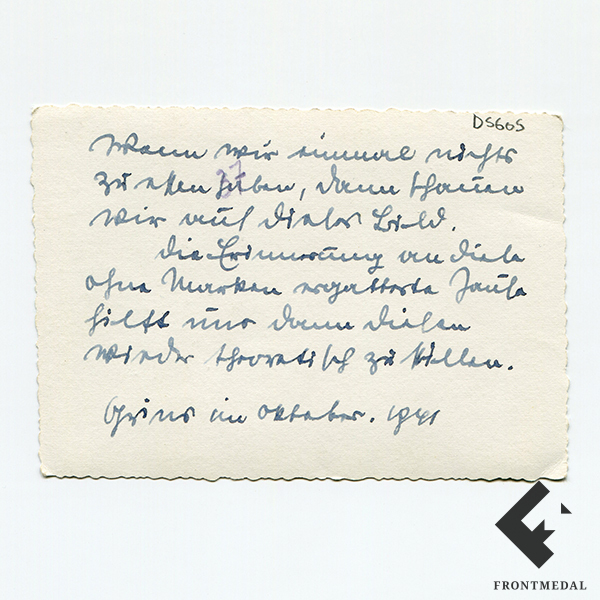 DS605
Wenn wir einmal nichts
zu essen haben, dann schauen
wir auf dieses Bild.
27
Die Erinnerung an diese
ohne Marken ergatterte Jause
hilft uns dann diesen
wieder theoretisch zu stillen.
im Oktober. 1941
FRONTMEDAL